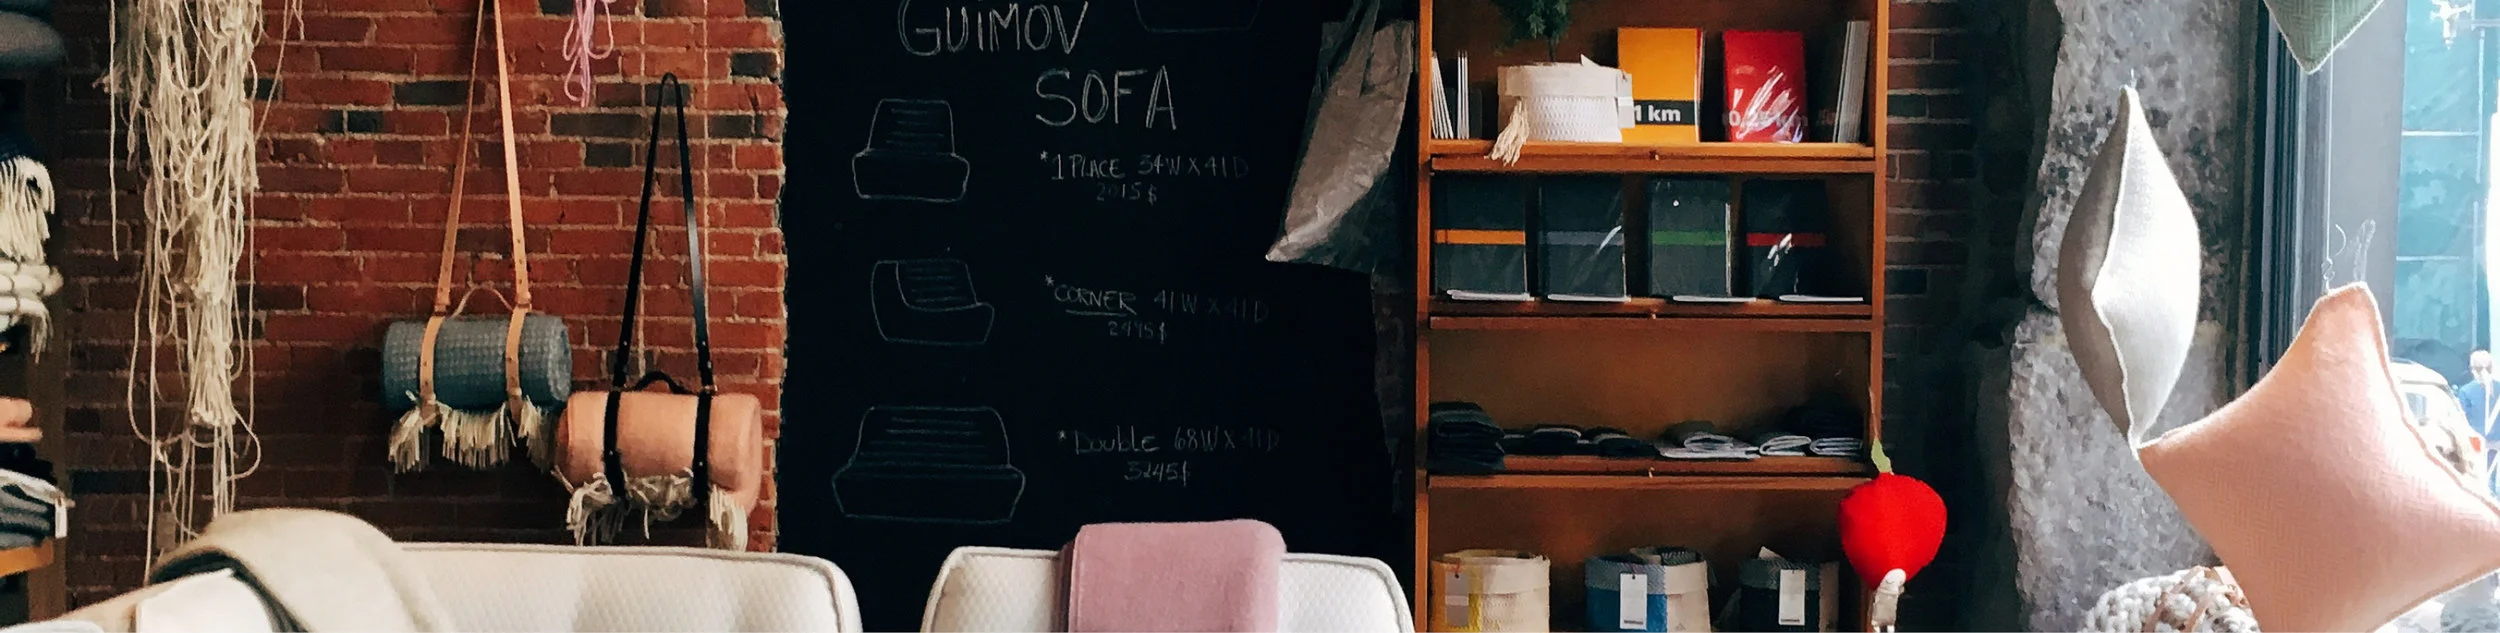 GUIMOV
SOFA
*1 PLACE 34W X 41D
2015$
*CORNER 41W X 41D
2495$
*DOUBLE 68W X 41D
3245$
1 km